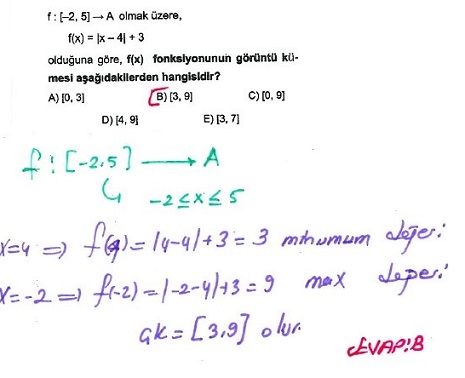 f : [–2, 5] → A olmak üzere,
f(x) = |x – 4| + 3
olduğuna göre, f(x) fonksiyonunun görüntü kü-
mesi aşağıdakilerden hangisidir?
A) [0, 3] B) [3, 9] C) [0, 9]
D) [4, 9] E) [3, 7]
f : [-2,5] → A
-2 ≤ x ≤ 5
x=4 ⇒ f(4) = |4-4|+3 = 3 minumum değeri
x=-2 ⇒ f(-2) = |-2-4|+3 = 9 max değeri
GK = [3,9] olur.
CEVAP:B